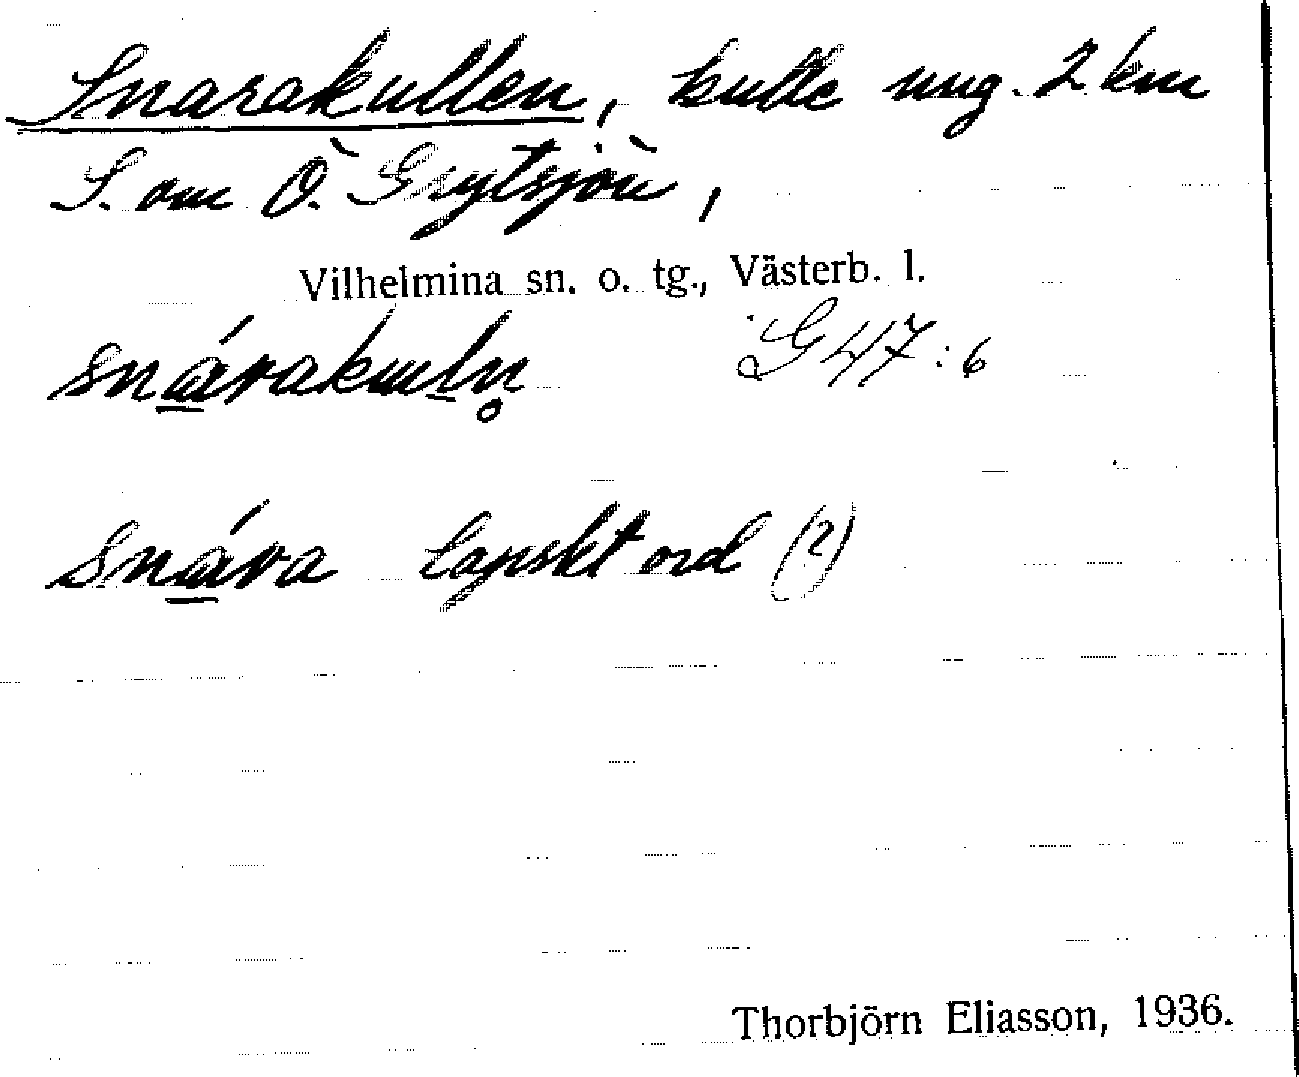 Snarakullen, kulle ung. 2 km
S. om Ö. Grytsjön,
Vilhelmina sn. o. tg., Västerb. l.
snárakuln̥ G 47:6
snára lapskt ord (?)
Thorbjörn Eliasson, 1936.